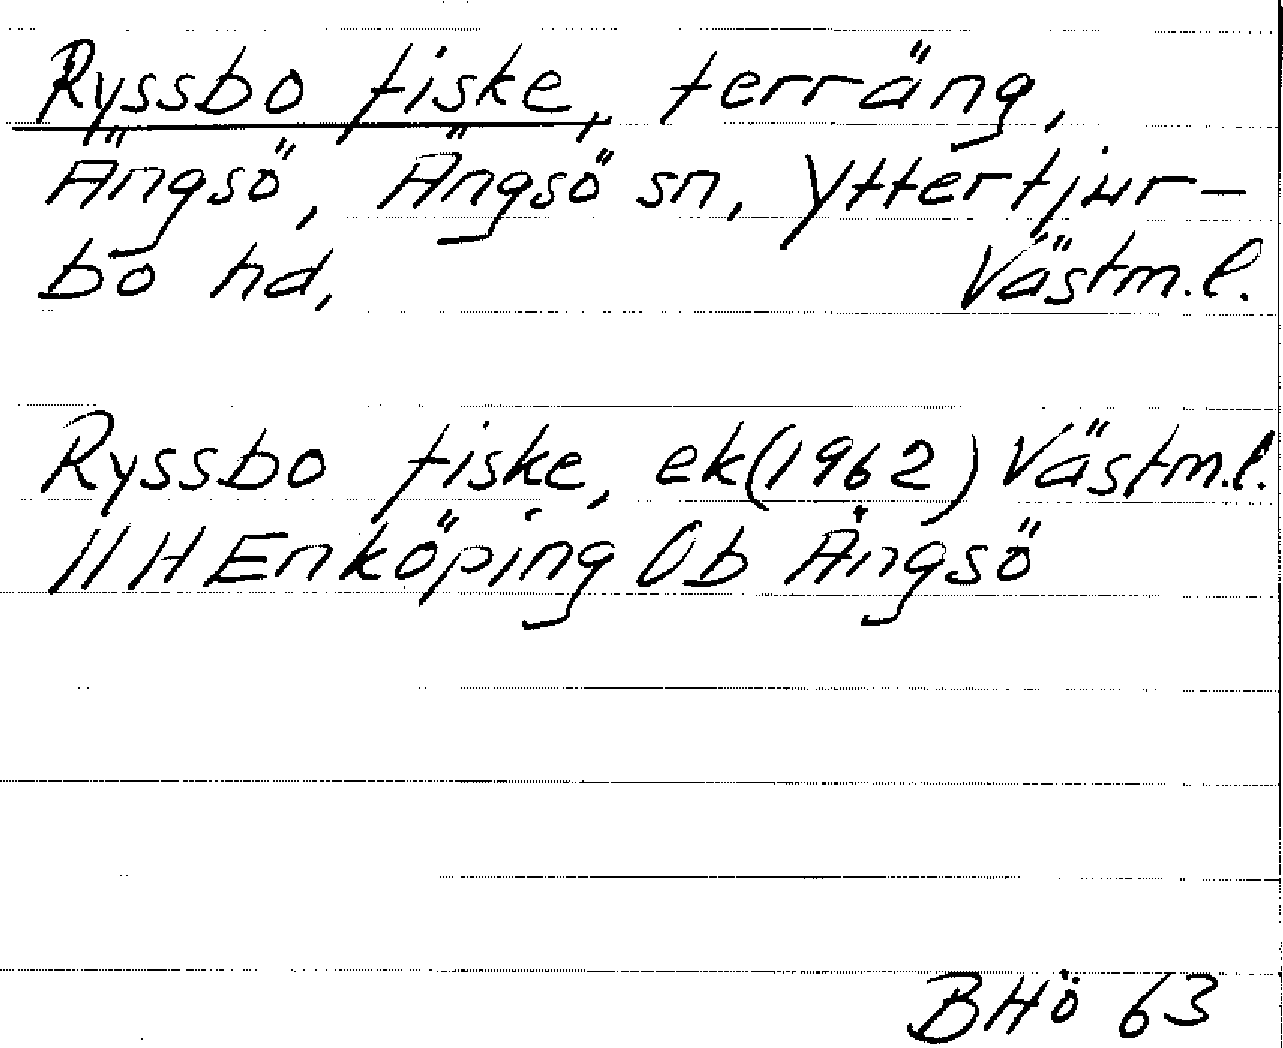 Ryssbo fiske, terräng,
Ängsö, Ängsö sn, Yttertjur-
bo hd, Västm.l.
Ryssbo fiske, ek(1962) Västm.l.
11 H Enköping 0b Ängsö
BHö 63